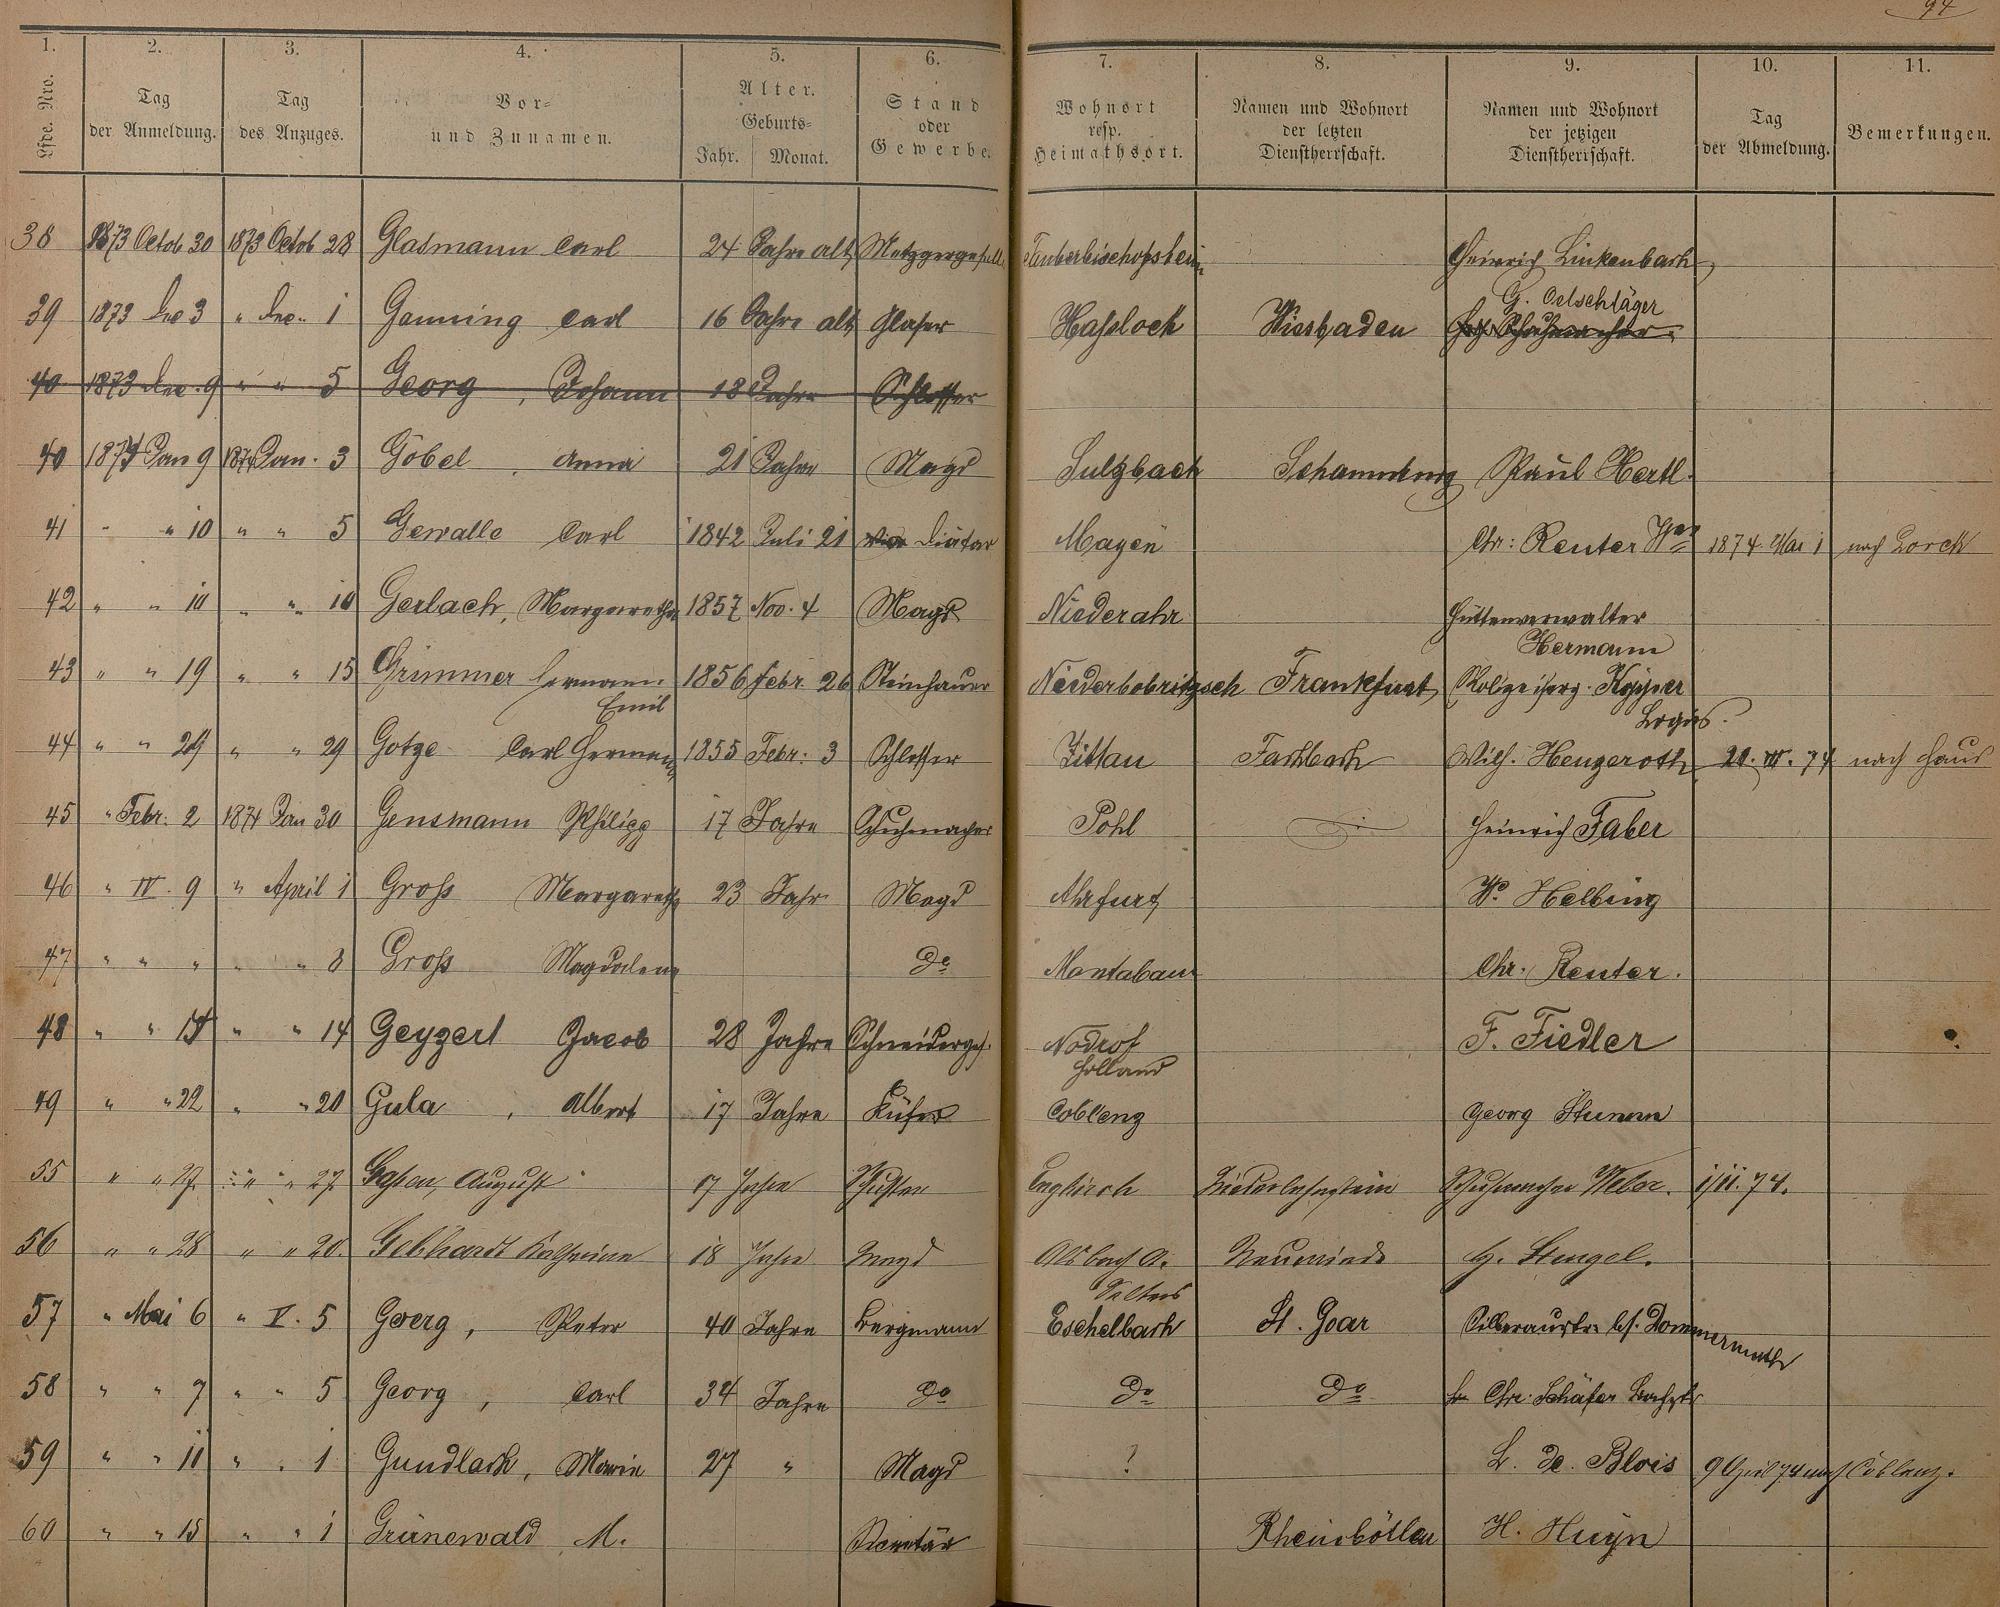 94
1. 2. 3. 4. 5. 6. 7. 8. 9. 10. 11.
Lfde. Nro. Tag der Anmeldung. Tag des Anzuges. Vor- und Zunamen. Alter. Geburts- Jahr. Monat. Stand oder Gewerbe. Wohnort resp. Heimathsort. Namen und Wohnort der letzten Dienstherrschaft. Namen und Wohnort der jetzigen Dienstherrschaft. Tag der Abmeldung. Bemerkungen.
38 1873 Octob 30 1873 Octob 28 Glasmann Carl 24 Jahre alt Metzgergesell Tauberbischofsheim Heinrich Linkenbach
39 1873 Dec 3 " Dec. 1 Ganning Carl 16 Jahre alt Glaser Hassloch Wiesbaden G. Oelschläger
40 1873 Dec. 9 " " 5 Georg, Johann 18 Jahre Schlosser
40 1874 Jan 9 1874 Jan. 3 Göbel, Anna 21 Jahre Magd Sulzbach Paul Hertl.
41 " " 10 " " 5 Gewalle Carl 1842 Juli 21 Diätar Mayen Chr: Reuter Wwe 1874 Mai 1 nach Lorch
42 " " 10 " " 10 Gerlach, Margaretha 1857 Nov. 4 Magd Niederahr Hüttenverwalter Hermann
43 " " 19 " " 15 Grimmer Hermann Emil 1856 Febr. 26 Steinhauer Niederbobritzsch Frankfurt Polizeiserg. Logis.
44 " " 29 " " 29 Gotze Carl Hermann 1855 Febr: 3 Schlosser Zittau Fachbach Wilh. Hengeroth 20. III. 74 nach Haus
45 " Febr. 2 1874 Jan 30 Gensmann Philipp 17 Jahre Schuhmacher Pohl Heinrich Faber
46 " IV. 9 " April 1 Gross Margaretha 23 Jahr Magd Ahrfurt W. Helbing
47 " " " " " 8 Gross Magdalena do Montabaur Chr. Reuter.
48 " " 14 " " 14 Geyzert Jacob 28 Jahre Schneiderges. Nodrof Holland F. Fiedler
49 " " 22 " " 20 Gula, Albert 17 Jahre Küfer Coblenz Georg Stumm
55 " " 27 " " " 27. August 17 Jahre Enkirch Niederlahnstein Schuhmacher Weber. 1/11. 74.
56 " " 28 " " 20. Gebhardt Katharina 18 Jahre Magd Selters H. Stengel.
57 " Mai 6 " V. 5 Georg, Peter 40 Jahre Bergmann Eschelbach St. Goar Silberaustr. bei Dommermuth
58 " " 7 " " 5 Georg, Carl 34 Jahre do do do Chr. Schäfer
59 " " 11 " " 1 Gundlach, Maria 27 " Magd ? L. de Blois 9 74 nach Coblenz.
60 " " 15 " " 1 Grünewald M. Secretär Rheinböllen H. Huyn